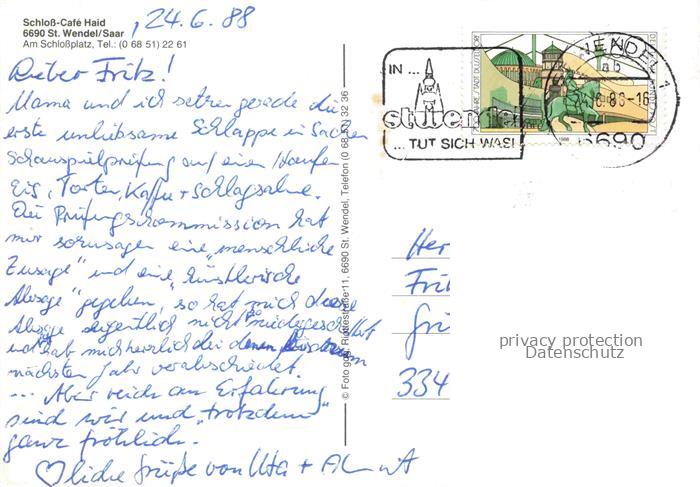 Schloß-Café Haid
6690 St. Wendel/Saar
Am Schloßplatz, Tel.: (0 68 51) 22 61
, 24.6.88
Lieber Fritz!
Mama und ich setzen gerade die
erste unliebsame Schlappe in Sachen
Schauspielprüfung auf einen Haufen
Eis, Torten, Kaffee + Schlagsahne.
Die Prüfungskommission hat
mir sozusagen eine "menschliche
Zusage" und eine "künstlerische
Absage" gegeben, so hat mich diese
Absage eigentlich nicht niedergeschmettert
und hab mich herzlich bei denen bis zum
nächsten Jahr verabschiedet.
... Aber reich an Erfahrung
sind wir und "trotzdem"
ganz fröhlich.
♡liche Grüße von Uta +
© Foto 6690 St. Wendel, Telefon (0 68 51) 32 36
IN ...
st.wendel
... TUT SICH WAS!
WENDEL 1
24.6.88-16
6690
Her
Fri
334
privacy protection
Datenschutz